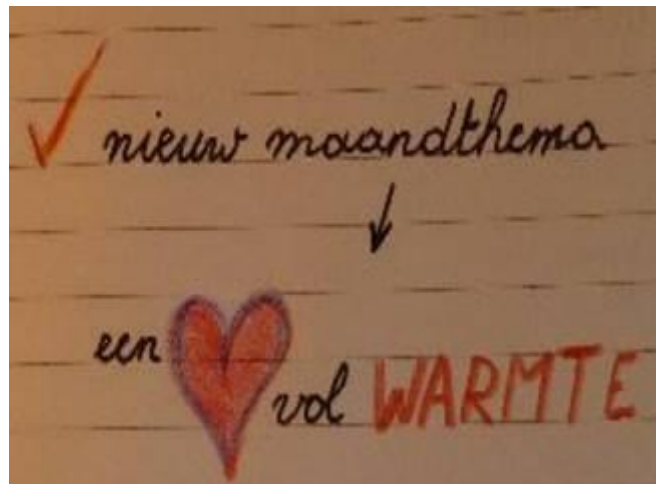 nieuw maandthema
een vol WARMTE